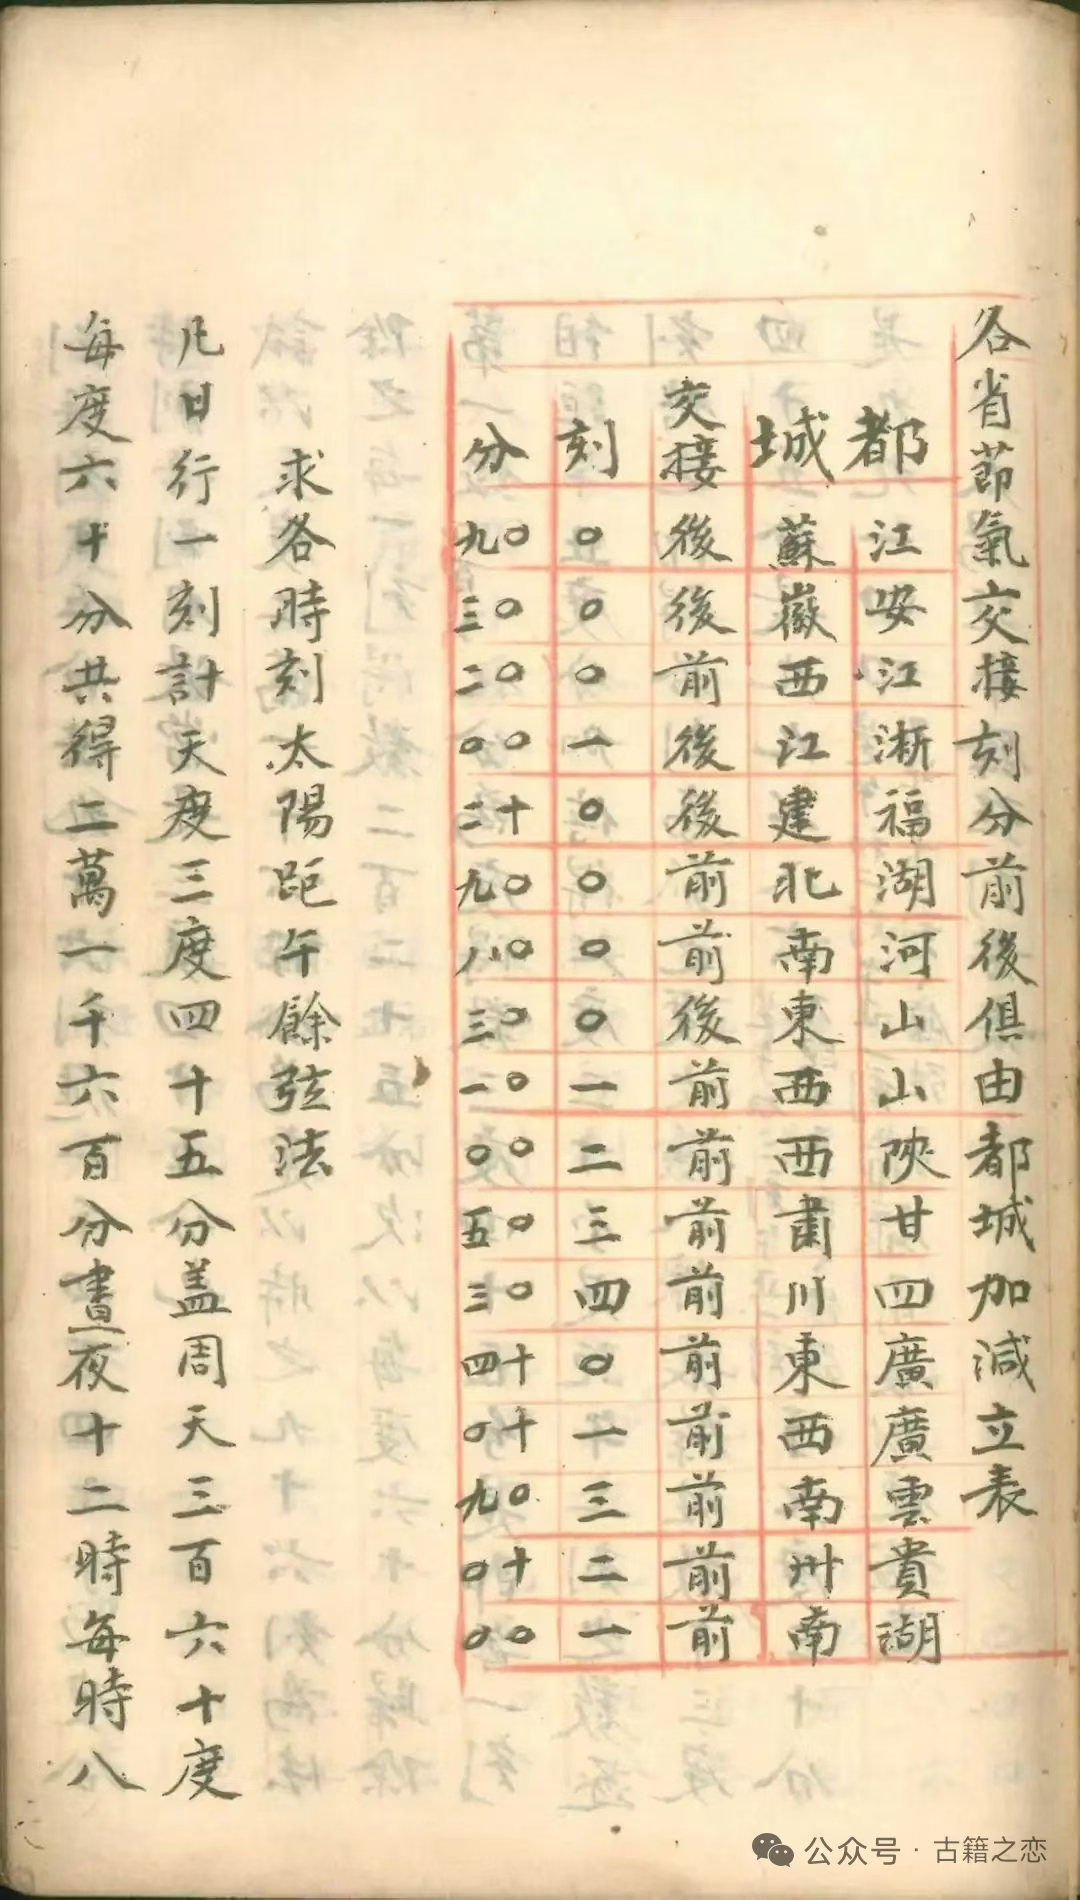 各省節氣交接刻分前後俱由都城加減立表
都城 交接 刻 分
江蘇 後 〇 〇九
安徽 後 〇 〇三
江西 前 〇 〇二
淅江 後 一 〇〇
福建 後 〇 十二
湖北 前 〇 〇九
河南 前 〇 〇八
山東 後 〇 〇三
山西 前 一 〇一
陝西 前 二 〇〇
甘肅 前 三 〇五
四川 前 四 〇三
廣東 前 〇 十四
廣西 前 一 十〇
雲南 前 三 〇九
貴州 前 二 十〇
湖南 前 一 〇〇
求各時刻太陽距午餘弦法
凡日行一刻計天度三度四十五分盖周天三百六十度
每度六十分共得二萬一千六百分晝夜十二時每時八
公众号·古籍之恋